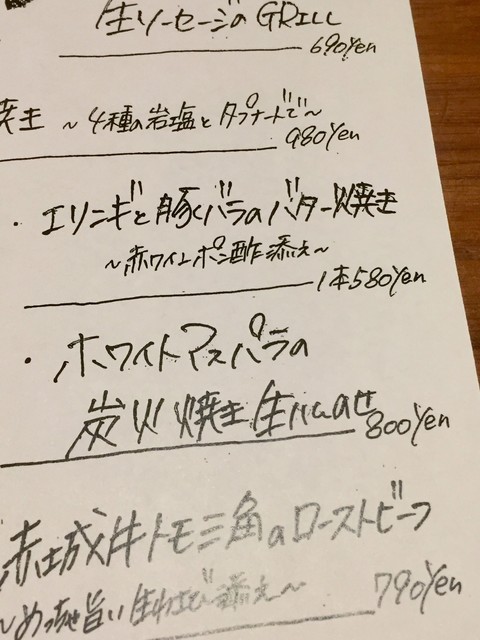 生ソーセージのGRILL
690Yen
焼き ～4種の岩塩とタプナードで～
980Yen
・エリンギと豚バラのバター焼き
～赤ワインポン酢添え～
1本580Yen
・ホワイトアスパラの
炭火焼き生ハムのせ
800Yen
赤城牛トモ三角のローストビーフ
～めっちゃ旨い生わさび添え～
790Yen